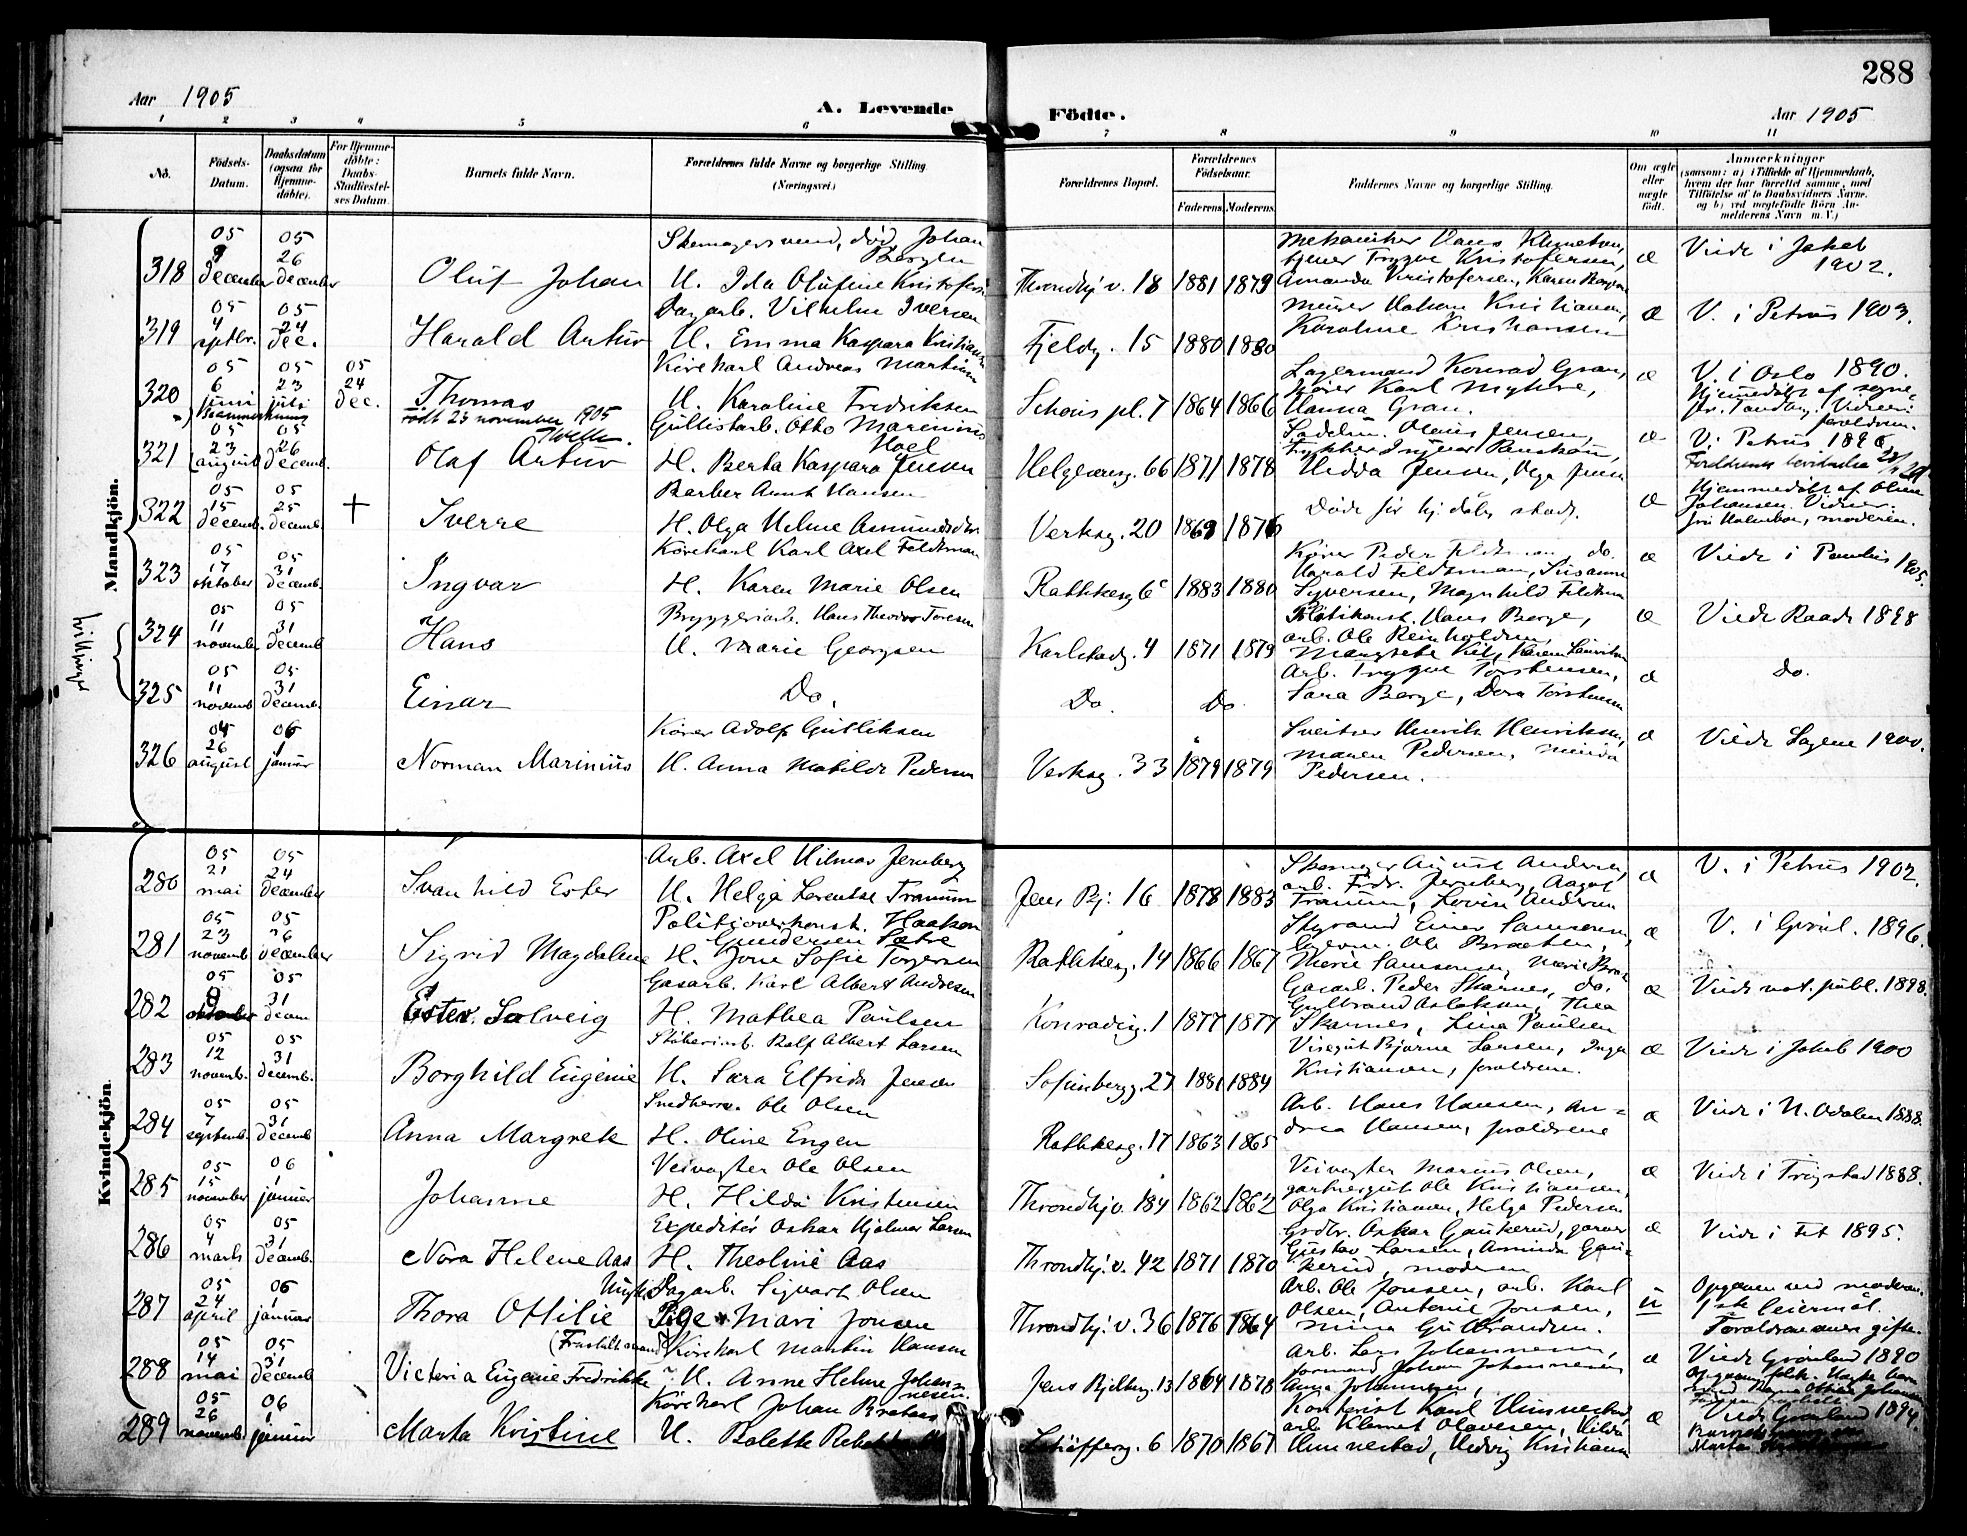 288
Aar 1905
A. Levende Födte.
Aar 1905
1 2 3 4 5 6 7 8 9 10 11
No.
Födsels-Datum.
Daabsdatum (ogsaa for Hjemme-döbte).
For Hjemme-döbte: Daabs-Stadfæstel-ses Datum.
Barnets fulde Navn.
Forældrenes fulde Navne og borgerlige Stilling (Næringsvei.)
Forældrenes Bopæl.
Forældrenes Födselsaar.
Faderens. Moderens.
Faddernes Navne og borgerlige Stilling.
Om ægte eller uægte födt.
Anmærkninger
(saasom: a) i Tilfælde af Hjemmedaab,
hvem der har forrettet samme, med
Tilföielse af to Daabsvidners Navne,
og b) ved uægtefödte Börn An-
melderens Navn m. V.)
Mandkjön.
318 05 3 december 05 26 december Oluf Johan
Skomagersvend, død, Johan Bergten
H. Ida Olufine Kristofers
Throndhj. v. 18 1881 1879
Mekaniker Hans
tjener Trygve Kristofersen,
Amanda Kristofersen, Karen
æ Viede i Jakob 1902.
319 05 4 septbr. 05 24 dec. Harald Artur
Dagarb. Vilhelm Iversen
H. Emma Kaspara Kristians
Fjeldg. 15 1880 1880
Murer Johan Kristiansen,
Karoline Kristiansen
æ V. i Petrus 1903.
320 05 6 juni 05 23 juli 05 24 dec. Thomas
Kirekarl Andreas Martin
H. Karoline Fredriksen
Schous pl. 7 1864 1866
Lagermand Konrad Gran,
Kører Karl Myhre,
Hanna Gran.
æ V. i Oslo 1890.
Hjemmedøbt af sogne-
pr. Tandberg. Vidner:
foreldrene.
født 23 november 1905
321 05 23 august 05 26 decemb. Olaf Artur
Gullistarb. Otto Marinius Hoel
H. Berta Kaspara Jensen
Helgesensg. 66 1871 1878
Sadelm. Olaus Jensen,
Hedda Jensen, Olga Jensen
æ V. Petrus 1896
322 05 15 decemb. 05 25 decemb. + Sverre
Barber Arnt Hansen
H. Olga Helene Asmundsdtr
Verksg. 20 1869 1876
Døde før hj. dåbs stadf.
æ Hjemmedøbt af Oline
Johansen. Vidner:
fru Holmboe, moderen.
323 05 17 oktober 05 31 decemb. Ingvar
Kørekarl Karl Axel Feldtman
H. Karen Marie Olsen
Rathkesg 6c 1883 1880
Kører Peder Feldtman, do.
Harald Feldtman, Susanne
Syversen, Magnhild Feldtman
æ Viede i Paulus 1905.
tvillinger
324 05 11 november 05 31 decemb Hans
Bryggeriarb. Hans Theodor Toresen
H. Marie Georgsen
Karlstadg. 4 1871 1879
Politikonst. Hans Berge,
arb. Ole Reinholdsen,
æ Viede Raade 1898
325 05 11 novemb 05 31 decemb. Einar
Do.
Do. Do
Arb. Trygve Torstensen,
Sara Berge, Dora Torstensen
æ do.
326 04 26 august 06 1 januar Norman Marinius
Kører Adolf Gulliksen
H. Anna Matilde Pedersen
Verksg. 33 1879 1879
Sveitser Henrik Henriksen,
Maren Pedersen, Minda
Pedersen.
æ Viede Sagene 1900.
Kvindekjön.
280 05 21 mai 05 24 december Svanhild Ester
Arb. Axel Hilmar Jernberg
H. Helga Lorentse Tranum
Jens Bj. 16 1878 1883
Skomager August Andersen,
arb. Fredr. Jernberg, Aagot
Tranum, Lovise Andersen
æ V. i Petrus 1902.
281 05 23 novemb 05 26 december Sigrid Magdalene
Politioverkonst. Haakon
Gundersen Sætre
H. Jone Sofie Torgersen
Rathkesg. 14 1866 1867
Styrmand Einar Samsonsen,
lagerm. Ole Braaten,
Marie Samsonsen, Marie
æ V. i Grønl. 1896.
282 05 9 oktober 05 31 decem Ester Solveig
Gasarb. Karl Albert Andresen
H. Mathea Paulsen
Konradig. 1 1877 1877
Gasarb. Peder Skarnes, do.
Gulbrand Aslaksen, Thea
Skarnes, Lina Paulsen
æ Viede not. publ. 1898.
283 05 12 novemb. 05 31 decemb. Borghild Eugenie
Støberiarb. Rolf Albert Larsen
H. Sara Elfrida Jensen
Sofienbergg. 27 1881 1884
Visegut Bjarne Larsen, Inga
Kristiansen, foreldrene.
æ Viede i Jakob 1900
284 05 7 septemb. 05 31 decemb Anna Margrete
Snedkersv. Ole Olsen
H. Oline Engen
Rathkesg. 17 1863 1865
Arb. Hans Hansen, An-
drea Hansen, foreldrene
æ Viede i N. Odalen 1888.
285 05 15 november 06 1 januar Johanne
Veivogter Ole Olsen
H. Hilda Kristensen
Throndhj v. 184 1862 1862
Veivogter Marius Olsen,
gartnergut Ole Kristiansen,
Olga Kristiansen, Helga Pedersen
æ Viede i Trøgstad 1888.
286 05 4 marts 05 31 decemb. Nora Helene Aas
Expeditør Oskar Hjalmar Larsen
H. Theoline Aas
Throndhj. v. 42 1871 1870
Grdbr. Oskar Gaukerud, garver
Gustav Larsen, Aminda Gau-
kerud, moderen
æ Viede i Fet 1895.
287 05 24 april 06 1 januar Thora Ottilie
Dagarb. Sigvart Olsen
Pige Mari Jonsen
Throndhj. v. 36 1876 1864
Arb. Ole Jonsen, arb. Karl
Olsen, Antonie Jonsen,
Mina Gulbrandsen.
u Opgaven ved moderen.
1ste leiermål.
Foreldrene gifte.
288 05 14 mai 05 31 decemb Victoria Eugenie Fredrikke
(Fraskilt mand) Kørekarl Martin Hansen
H. Anne Helene Johan-
nesen.
Jens Bjelkesg. 13 1864 1878
Arb. Lars Johannessen,
formand Johan Johannesen
Anna Johannesen,
æ Viede Grønland 1890
289 05 26 novemb 06 1 januar Marta Kristine
Kørekarl Johan Braten
H. Bolette
Schäfferg. 6 1870 1867
Kontorist Karl Hunnestad,
arb. Klemet Olavesen, Hilda
Hunnestad, Hedvig Kristiansen
æ Viede Grønland 1894.